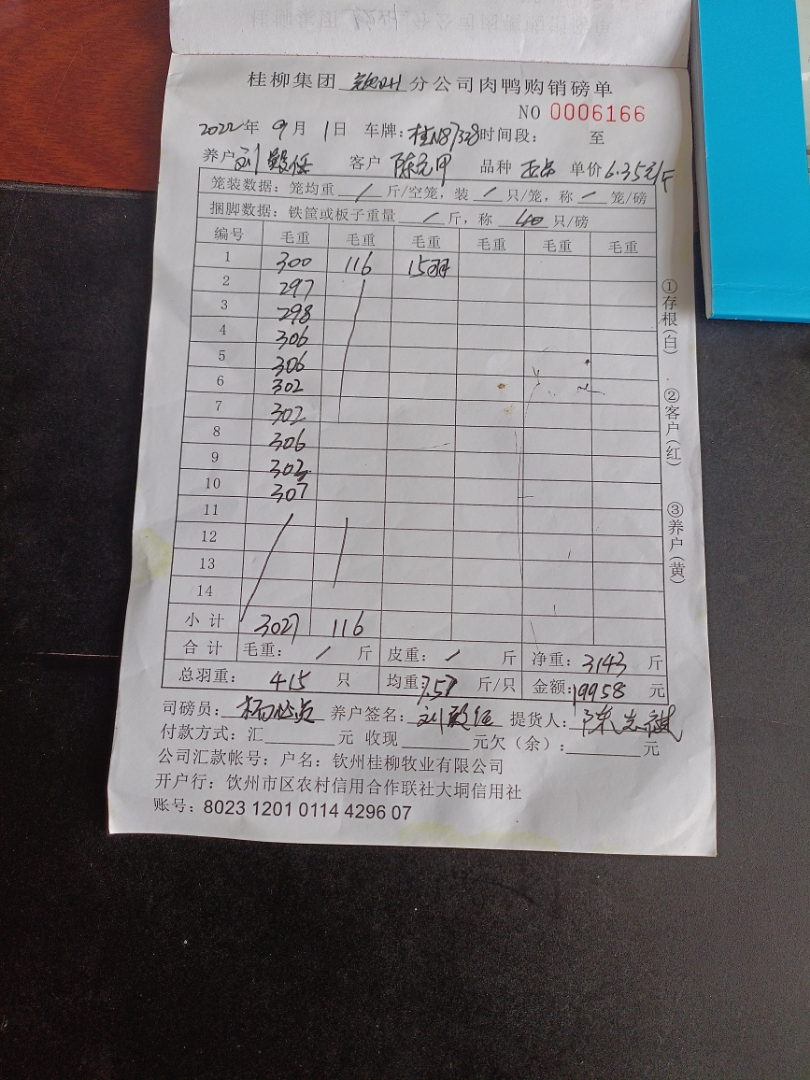 桂柳集团 钦州 分公司肉鸭购销磅单
NO 0006166
2022年 9月 1日 车牌: 时间段: 至
养户 刘 客户 陈 品种 正品 单价 6.35元/斤
笼装数据: 笼均重 / 斤/空笼, 装 / 只/笼, 称 / 笼/磅
捆脚数据: 铁筐或板子重量 / 斤, 称 40 只/磅
编号 毛重 毛重 毛重 毛重 毛重 毛重
1 300 116 15羽
2 297
3 298
4 306
5 306
6 302
7 302
8 306
9 303
10 307
11
12
13
14
小计 3027 116
合计 毛重: / 斤 皮重: / 斤 净重: 3143 斤
总羽重: 415 只 均重: 7.57 斤/只 金额: 19958 元
司磅员: 养户签名: 刘 提货人: 陈
付款方式: 汇 元 收现 元欠(余): 元
公司汇款帐号: 户名: 钦州桂柳牧业有限公司
开户行: 钦州市区农村信用合作联社大垌信用社
账号: 8023 1201 0114 4296 07
①存根(白) ②客户(红) ③养户(黄)